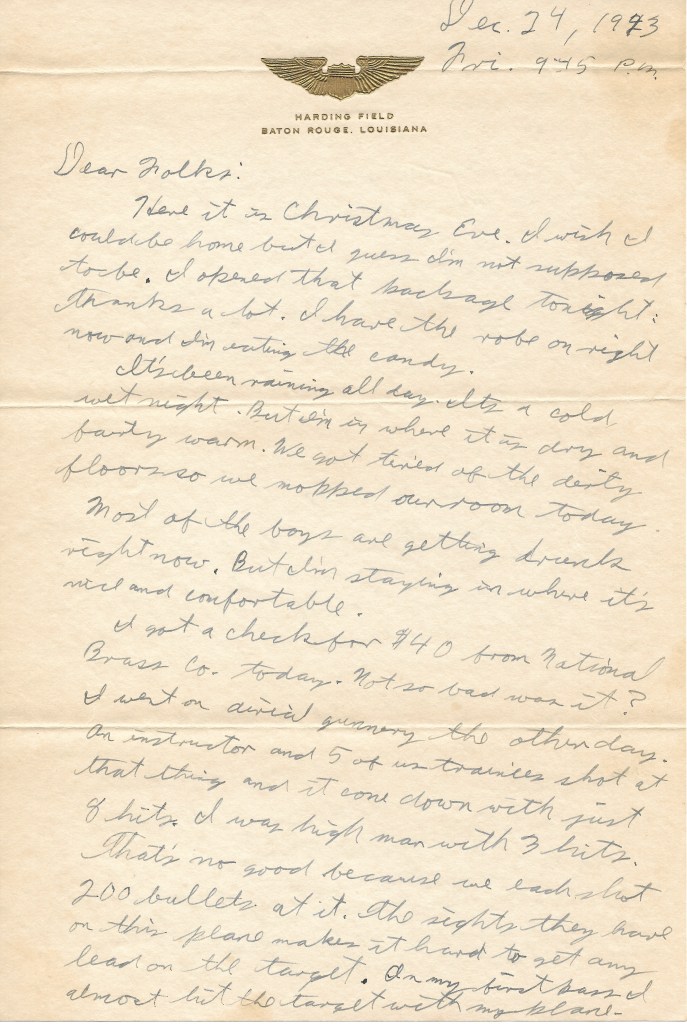 Dec. 24, 1943
Fri. 945 P.M.
HARDING FIELD
BATON ROUGE, LOUISIANA
Dear Folks:
Here it is Christmas Eve. I wish I
could be home but I guess I'm not supposed
to be. I opened that package tonight:
thanks a lot. I have the robe on right
now and I'm eating the candy.
It's been raining all day. Its a cold
wet night. But I'm in where it is dry and
fairly warm. We got tired of the dirty
floors so we mopped our room today.
Most of the boys are getting drunk
right now. But I'm staying in where it's
nice and confortable.
I got a check for $40 from National
Brass Co. today. Not so bad was it?
I went on aerial gunnery the other day.
An instructor and 5 of us trainies shot at
that thing and it come down with just
8 hits. I was high man with 3 hits.
That's no good because we each shot
200 bullets at it. The sights they have
on this plane makes it hard to get any
lead on the target. On my first pass I
almost hit the target with my plane-